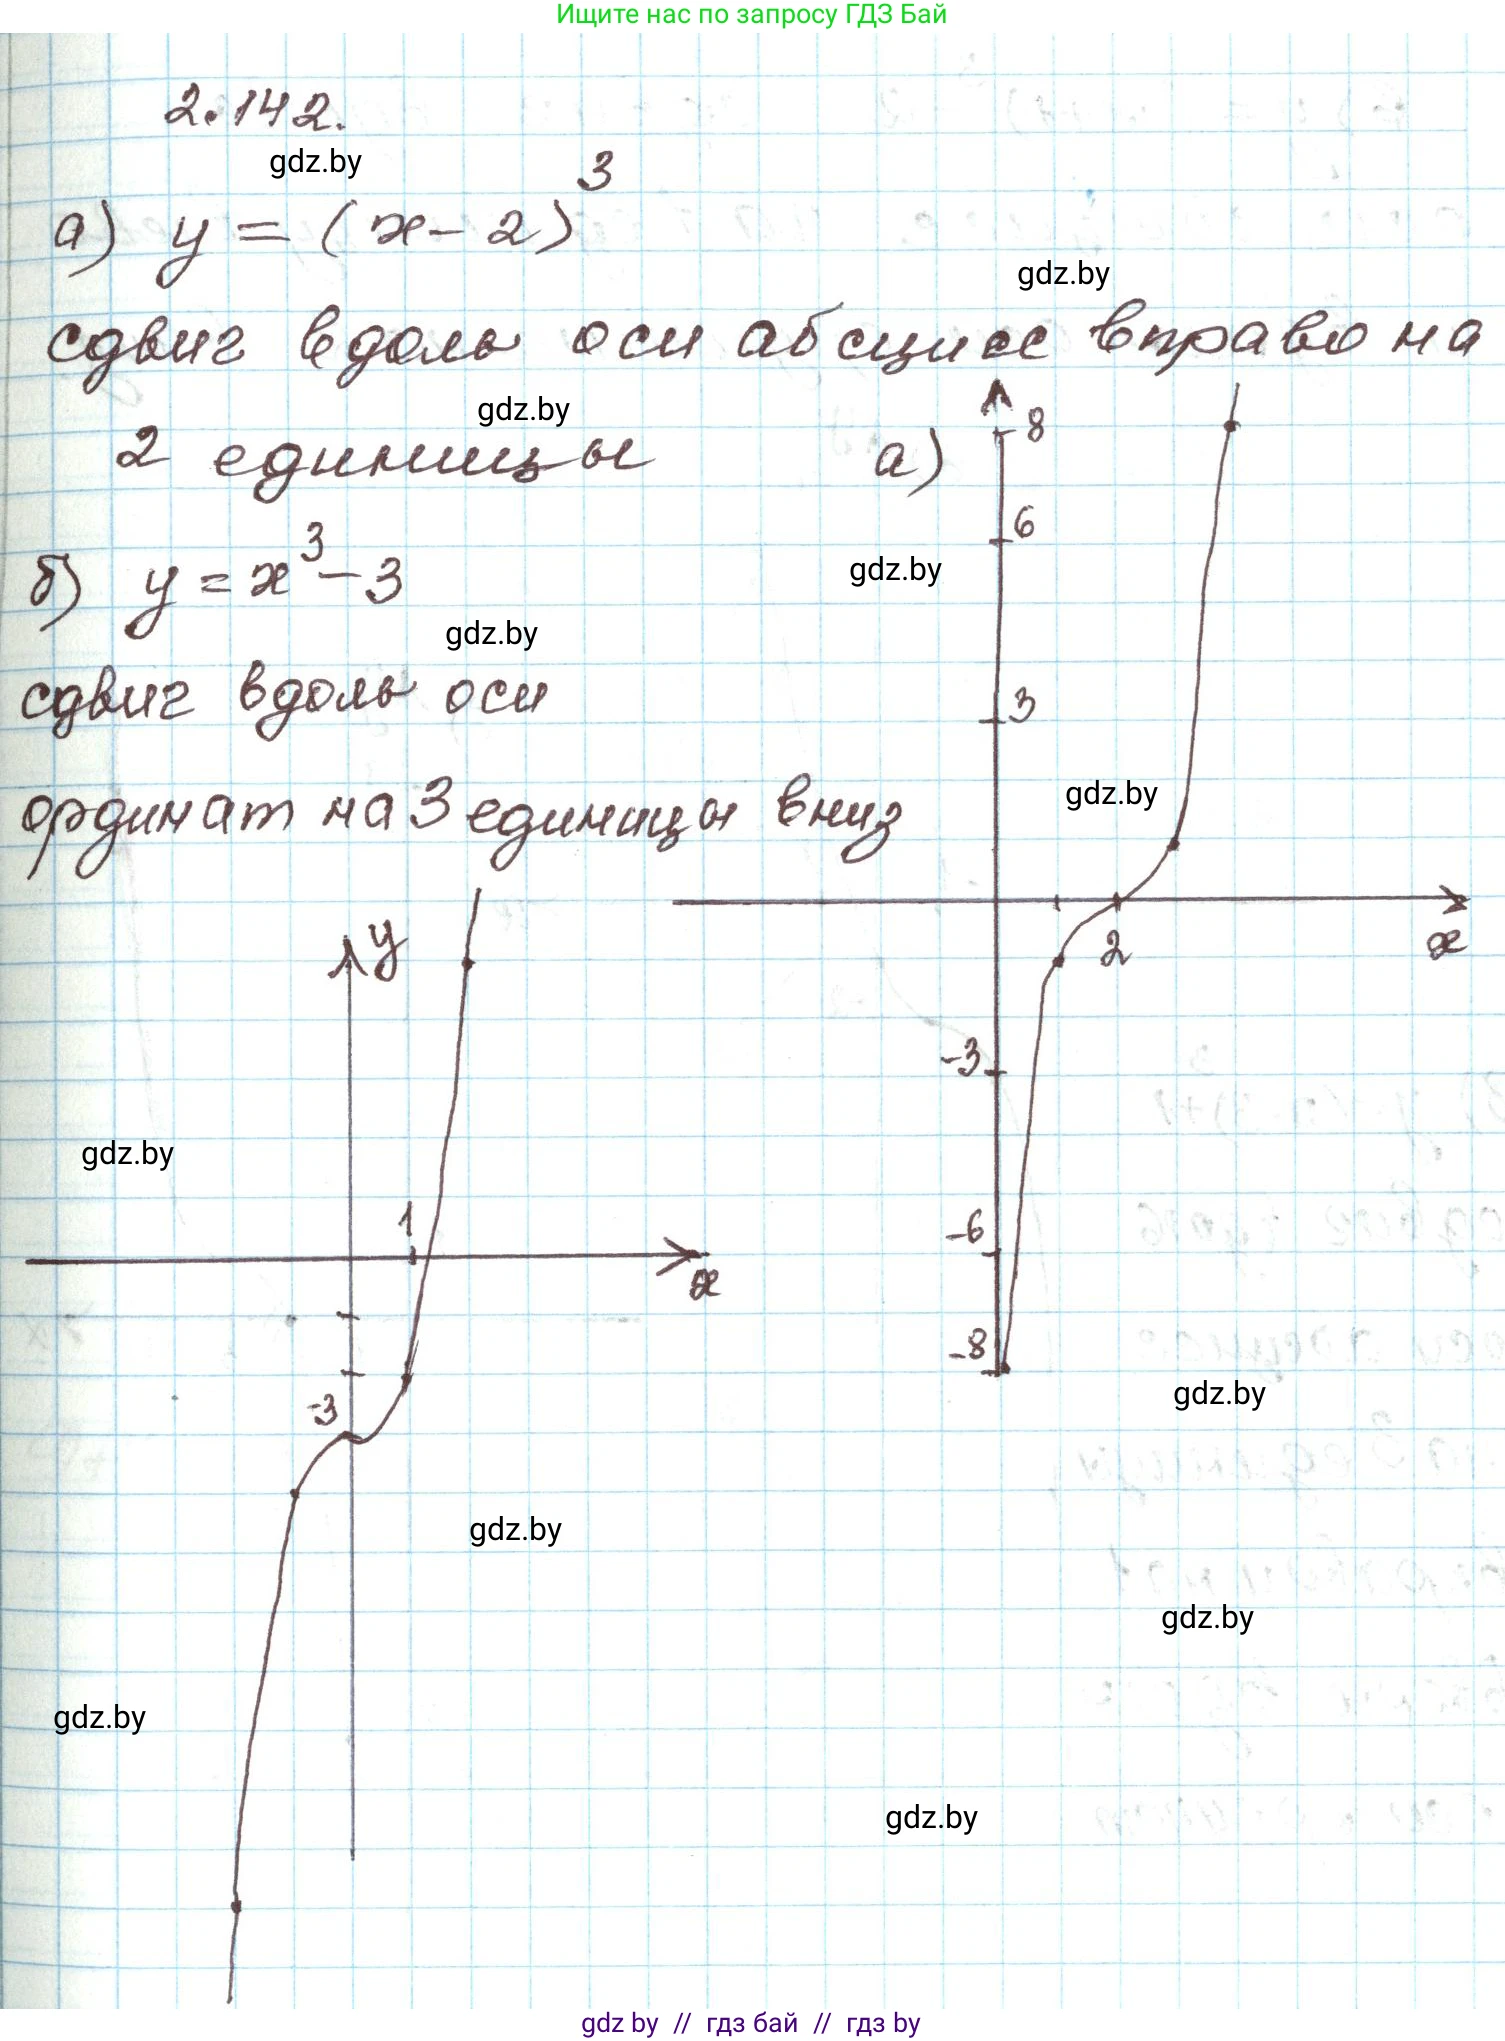 Ищите нас по запросу ГДЗ Бай
2.142.
gdz.by
а) y = (x - 2)³
gdz.by
сдвиг вдоль оси абсцисс вправо на
gdz.by
2 единицы
а)
8
6
б) y = x³ - 3
gdz.by
gdz.by
сдвиг вдоль оси
3
ординат на 3 единицы вниз
gdz.by
y
2
x
-3
gdz.by
1
-6
x
-8
gdz.by
-3
gdz.by
gdz.by
gdz.by
gdz.by
gdz by // гдз бай // гдз by